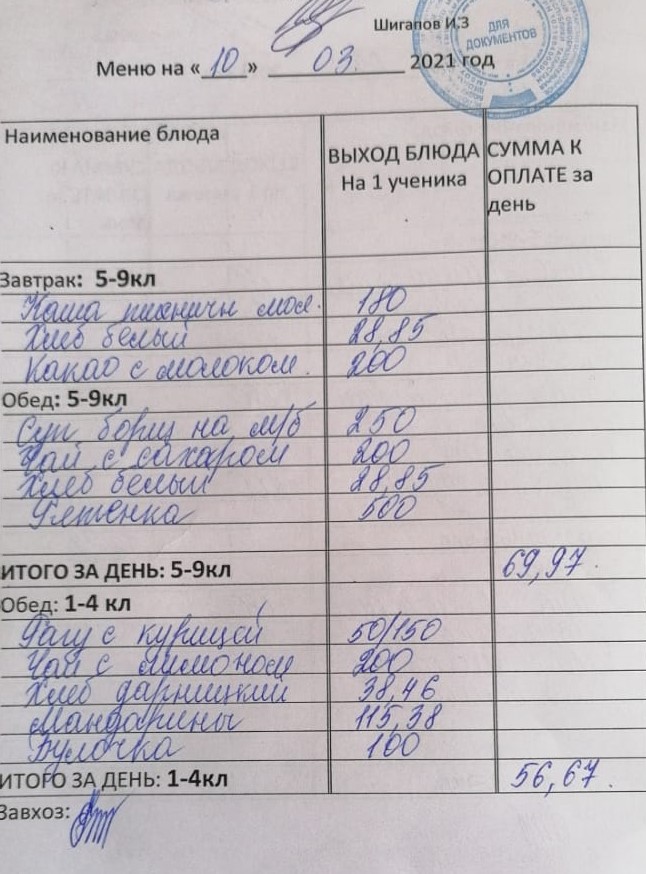 Шигапов И.З
ДЛЯ
ДОКУМЕНТОВ
Меню на «10» 03. 2021 год
Наименование блюда
ВЫХОД БЛЮДА
На 1 ученика
СУММА К
ОПЛАТЕ за
день
Завтрак: 5-9кл
Каша пшеничн мол. 180
Хлеб белый 28,85
Какао с молоком. 200
Обед: 5-9кл
Суп борщ на м/б 250
Чай с сахаром 200
Хлеб белый 28,85
Плетенка 500
ИТОГО ЗА ДЕНЬ: 5-9кл 69,97.
Обед: 1-4 кл
Рагу с курицей 50/150
Чай с лимоном 200
Хлеб дарницкий 38,46
Мандарины 115,38
Булочка 100
ИТОГО ЗА ДЕНЬ: 1-4кл 56,67.
Завхоз: